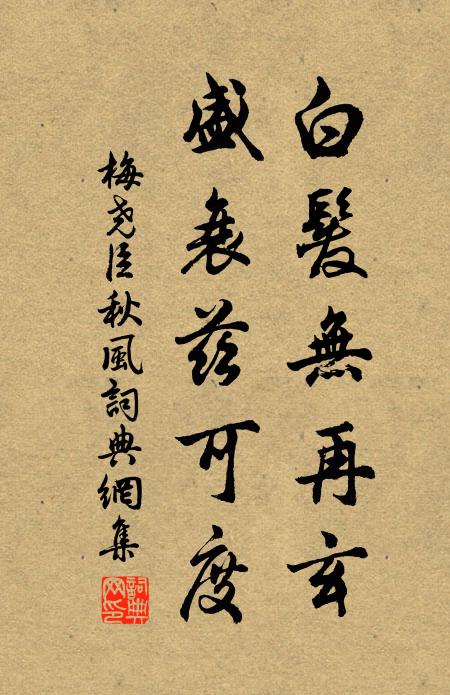 白髮無再玄
盛衰茲可度
梅堯臣秋風詞典網集
詞典網印